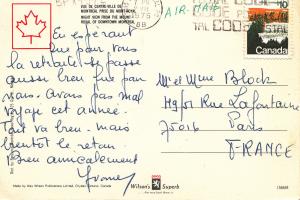 VUE DU CENTRE-VILLE DE
MONTREAL PRISE DU MONT-ROYAL
NIGHT VIEW FROM THE MOUNT
ROYAL OF DOWNTOWN MONTREAL
AIR-MAIL
1975
10
Canada
En espérant
que pour vous
la retraite se passe
aussi bien que pour
nous. Avons pas mal
voyagé cet année.
Tout va bien. mais
bientôt le retour.
Bien amicalement
Yvonne
M. et Mme Block
Rue Lafontaine
75016 Paris
FRANCE
Made by Wilson Publications Limited, Canada
Wilson's Superb